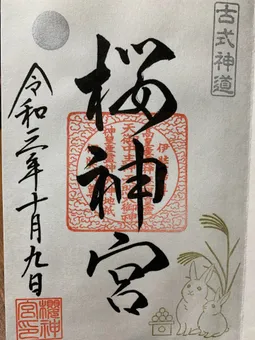 古式神道
桜神宮
伊勢
令和三年十月九日
櫻神宮印